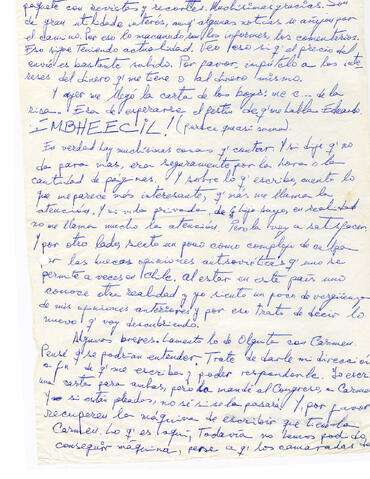 paquete con revistas y recortes. Muchísimas gracias. Son
de gran utilidad e interés, muy algunas noticias se añejan por
el camino. Por eso lo macanudo son los informes, los comentarios.
Eso sigue teniendo actualidad. Veo eso sí q' el precio del
envío es bastante subido. Por favor, impútalo a los inte-
reses del dinero q' me tiene o tal dinero mismo.
Y ayer me llegó la carta de los boys: me c... de la
risa. Era de esperarse el festín de q' me habla Eduardo.
IMBHEECIL! (parece guasi mono).
En verdad hay muchísimas cosas q' contar y si dije q' no
da para más, era seguramente por la hora o la
cantidad de páginas. Y sobre lo q' escribo, cuento lo
que me parece más interesante, q' más me llama la
atención. Y mi vida privada, de q' hijo suyo, en realidad
no me llama mucho la atención. Pero la voy a satisfacer.
Y por otro lado, siento un poco como complejo de culpa
por las huecas opiniones antisoviéticas q' uno se
permite a veces en Chile. Al estar en este país uno
conoce otra realidad y yo siento un poco de vergüenza
de mis opiniones anteriores y por eso trato de decir lo
nuevo q' voy descubriendo.
Algunos breves. Lamento lo de Olguita con Carmen.
Pensé q' se podrían entender. Trate de darle mi dirección
a fin de q' me escriba y poder responderle. Yo escribí
una carta para ambas, pero la mandé al Congreso, a Carmen
Y si están peleados, no sé si se la pasará. Y, por favor
recuperen la máquina de escribir que tiene la
Carmen. Lo q' es aquí, todavía no hemos podido
conseguir máquina, pese a q' los camaradas